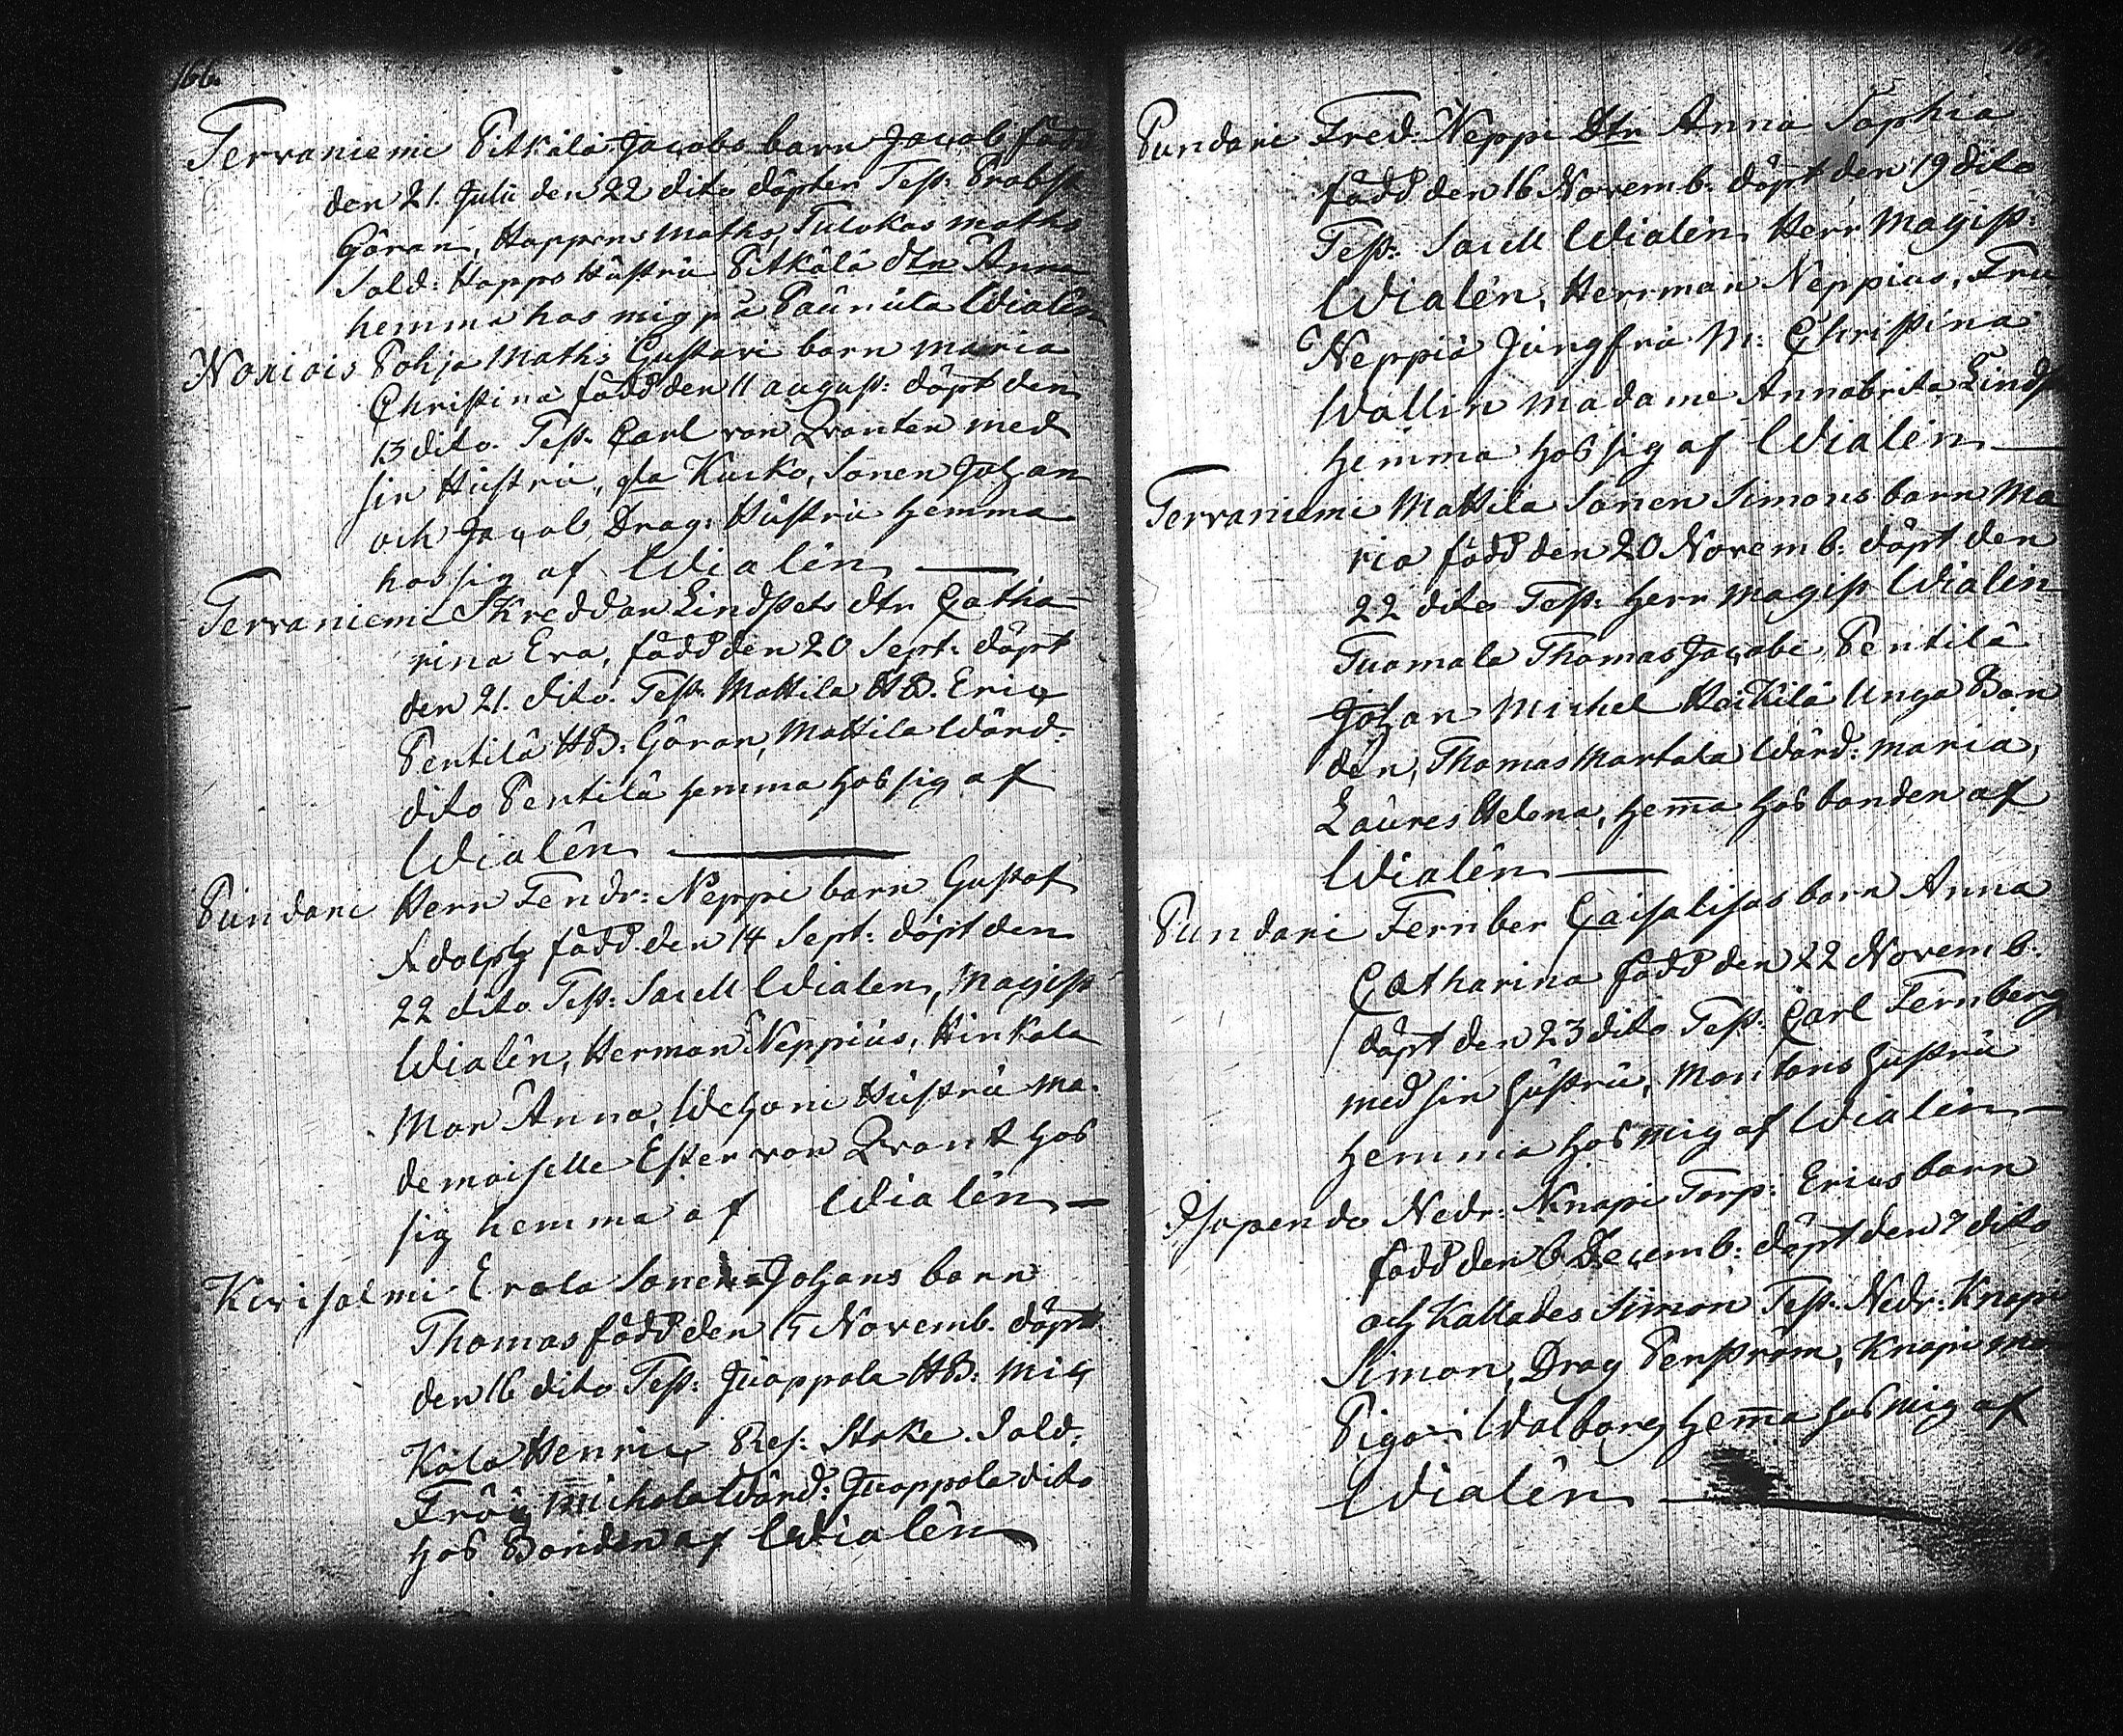 166.
Terraniemi Pitkälä Jacobs barn Jacob född
den 21. Julii den 22 dito döpter Test: Probst
Göran, Hoppens Maths, Tulokas Maths
Sold: Hopps Hustru Pitkälä dtr Anna
hemma hos mig på Paunula Wialén
Noxiois Pohja Maths Gustavi barn Maria
Christina född den 11 august: döpt den
13 dito. Test. Carl von Qvanten med
sin Hustru, gla Kusko, Sonen Johan
och Jacob, Drag: Hustru hemma
hos sig af Wialén
Terraniemi Skreddar Lindstets dtr Catha-
rina Eva, född den 20 Sept: döpt
den 21. dito. Test: Mattila HB. Eric
Pentilä HB: Göran, Mattila Wärd:
dito Pentilä hemma hos sig af
Wialén
Pundari Herr Fendr: Neppi barn Gustaf
Adolph född den 14 Sept: döpt den
22 dito Test: Sacell Wialen, Magist
Wialén, Herman Neppius, Hinkala
Mor Anna, Wehoni Hustru Ma-
demoiselle Ester von Qvant hos
sig hemma af Wialén
Kirisalmi Erola Sonens Johans barn
Thomas född den 15 Novemb. döpt
den 16 dito Test: Juoppola HB: Mic
Kälä Henric Res: Stake. Sold:
Fröij Mihola Wärd: Juoppola dito
hos Bonden af Wialén
Pundari Fred: Neppi Dtr Anna Sophia
född den 16 Novemb: döpt den 19 dito
Test: Sacell Wialén Herr Magist:
Wialén, Herrman Neppius, Fru
Neppia Jungfru M: Christina
Wallin Madame Annabrita Lindst
hemma hos sig af Wialén
Terraniemi Mattila Sonen Simons barn Ma
ria född den 20 Novemb: döpt den
22 dito Test: Herr Magist Wialén
Tuomala Thomas Jacobi Pentilä
Johan Michel Heikilä Unga Bon
den, Thomas Martala Wärd: Maria,
Laures Helena, hema hos bonden af
Wialén
Pundari Fernber Caisalisas barn Anna
Catharina född den 22 Novemb:
döpt den 23 dito Test: Carl Fernberg
med sin hustru, Montons hustru
hemma hos mig af Wialén
Isopendo Nedr: Knapi Torp: Erics barn
född den 6 Decemb: döpt den 7 dito
och Kallades Simon Test. Nedr: Knapi
Simon, Drag Penström, Knapi
Pigan Walborg hema hos mig af
Wialén